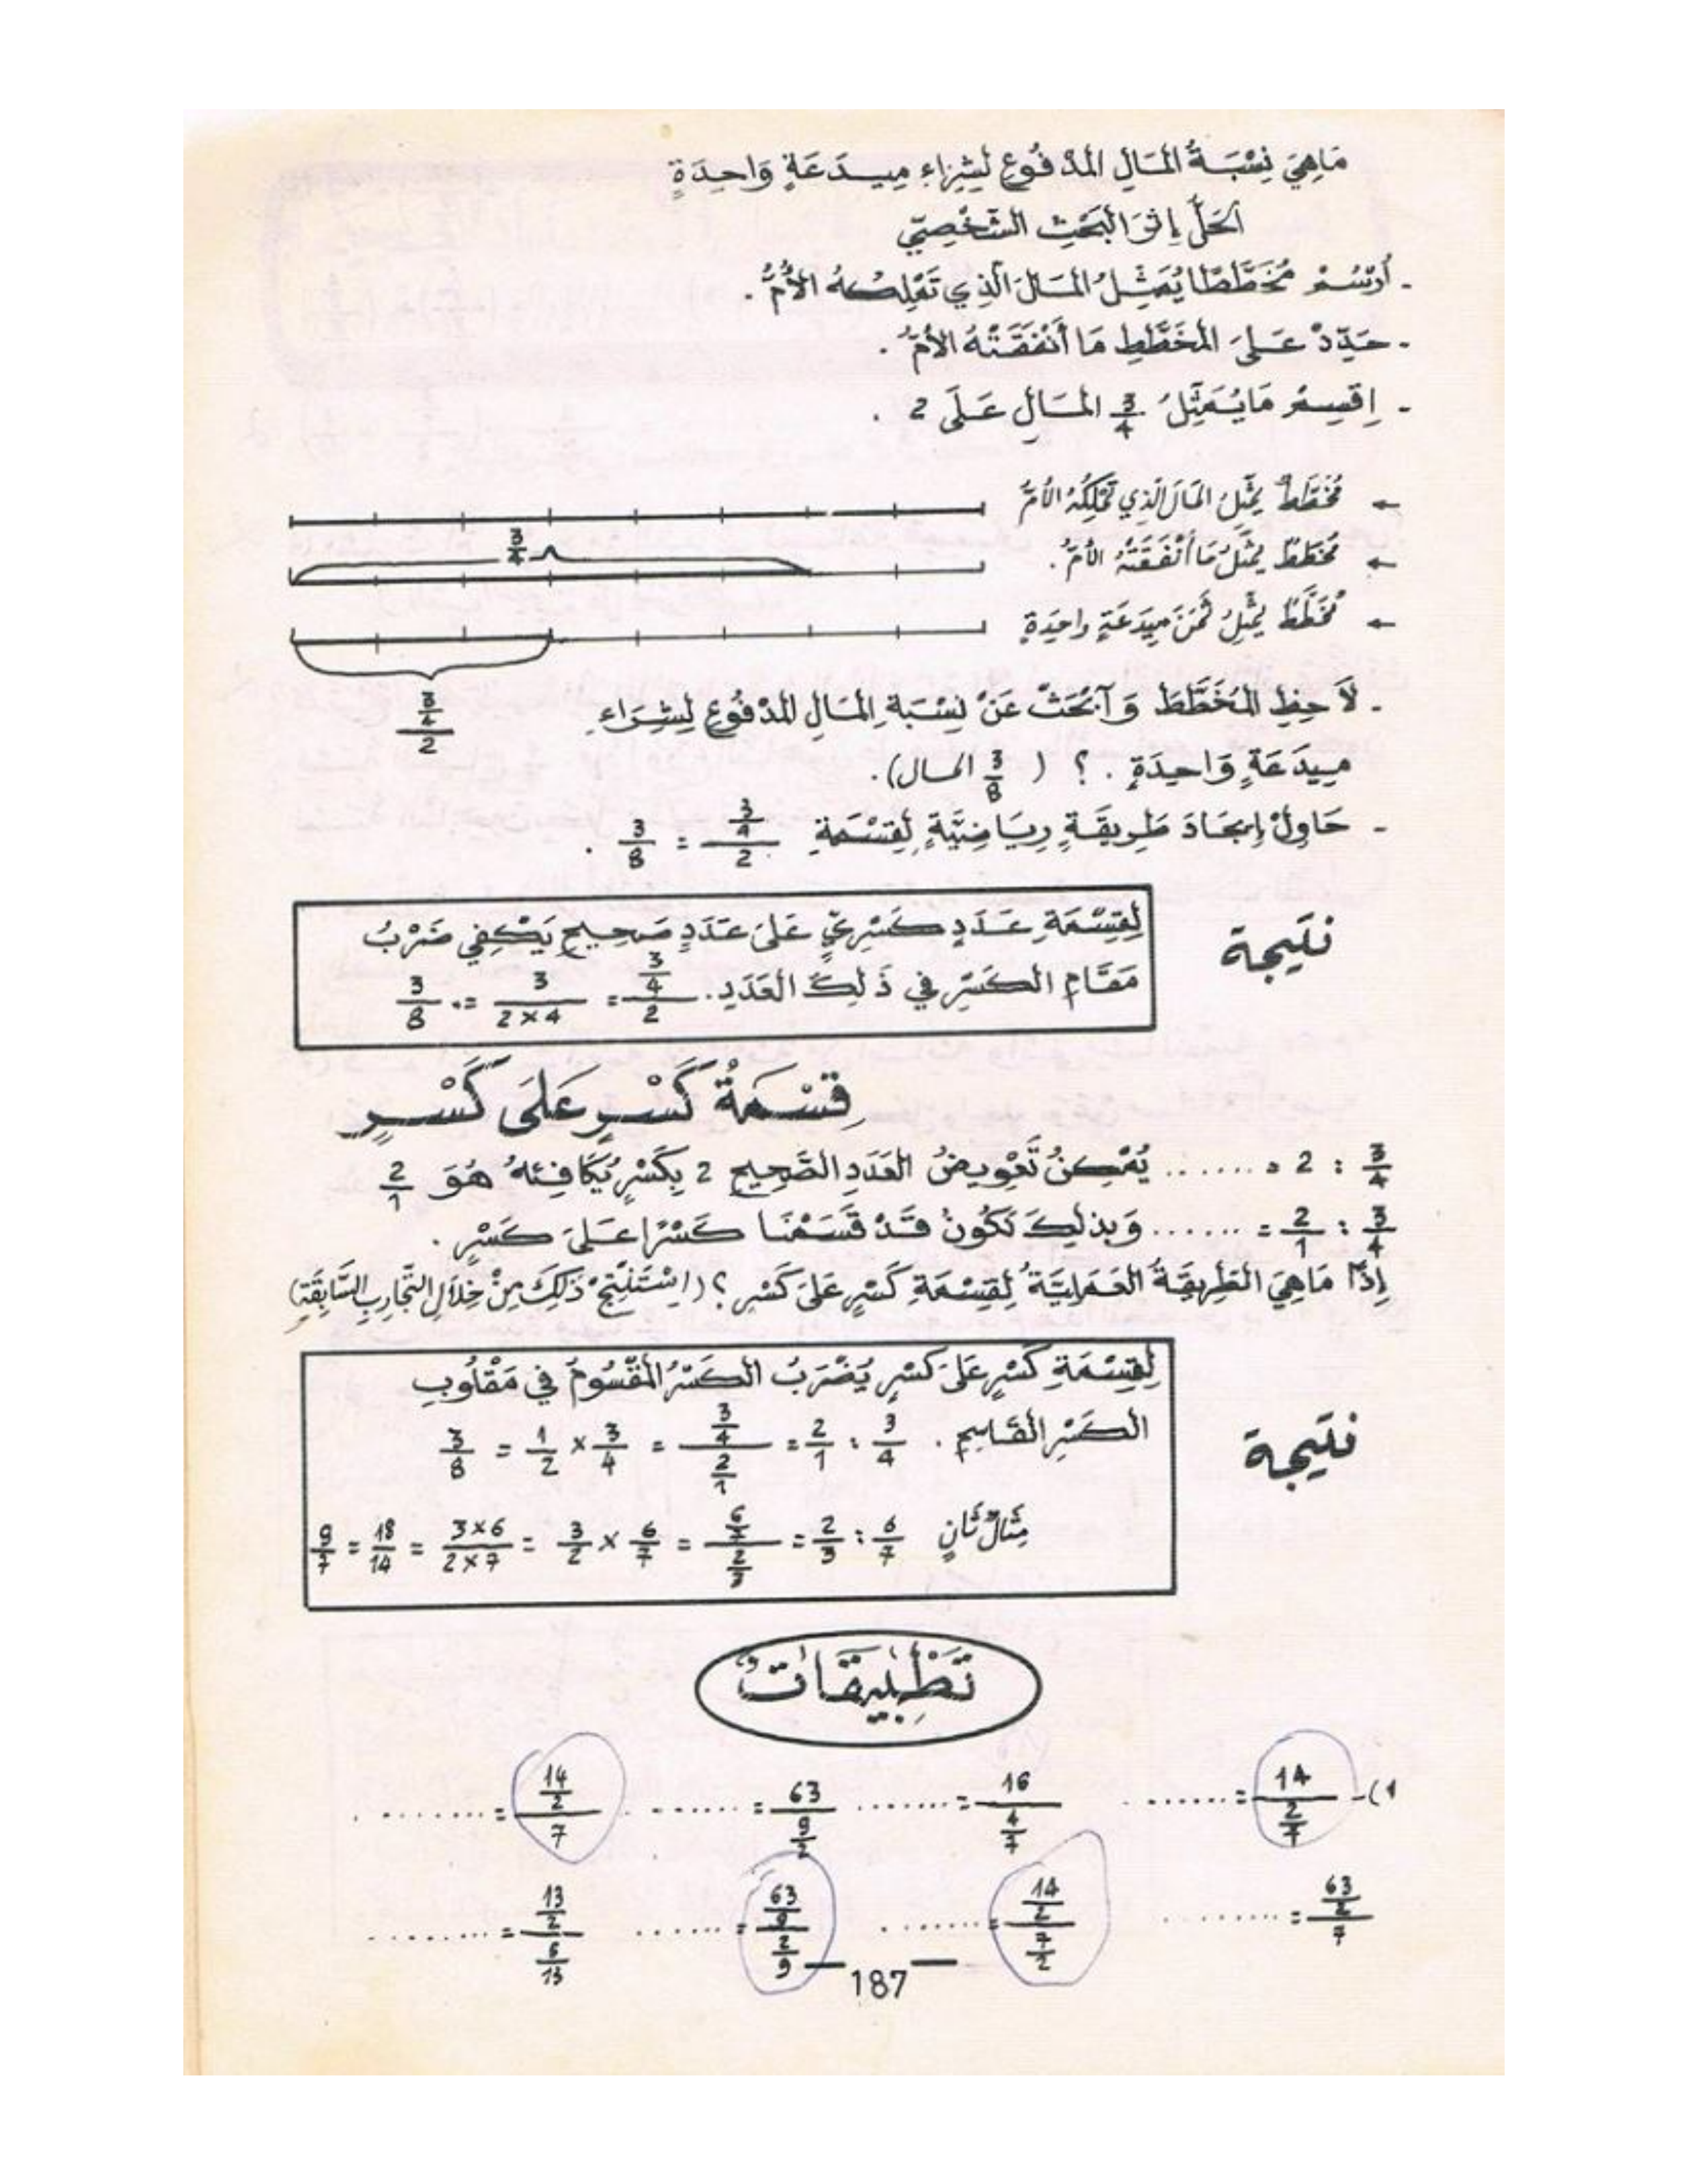 مَاهِيَ نِسْبَةُ المَالِ المَدْفُوعِ لِشِرَاءِ مِيدَعَةٍ وَاحِدَةٍ
الحَلُّ إِثْرَ البَحْثِ الشَّخْصِيِّ
- أُرْسُمْ مُخَطَّطًا يُمَثِّلُ المَالَ الَّذِي تَمْلِكُهُ الأُمُّ .
- حَدِّدْ عَلَى المُخَطَّطِ مَا أَنْفَقَتْهُ الأُمُّ .
- اِقْسِمْ مَا يُمَثِّلُ 3/4 المَالِ عَلَى 2 .
← مُخَطَّطٌ يُمَثِّلُ المَالَ الَّذِي تَمْلِكُهُ الأُمُّ
3/4
← مُخَطَّطٌ يُمَثِّلُ مَا أَنْفَقَتْهُ الأُمُّ .
← مُخَطَّطٌ يُمَثِّلُ ثَمَنَ مِيدَعَةٍ وَاحِدَةٍ
(3/4)/2
- لَاحِظِ المُخَطَّطَ وَابْحَثْ عَنْ نِسْبَةِ المَالِ المَدْفُوعِ لِشِرَاءِ
مِيدَعَةٍ وَاحِدَةٍ . ؟ ( 3/8 المال).
- حَاوِلْ إِيجَادَ طَرِيقَةٍ رِيَاضِيَّةٍ لِقِسْمَةِ (3/4)/2 = 3/8 .
نتيجة
لِقِسْمَةِ عَدَدٍ كَسْرِيٍّ عَلَى عَدَدٍ صَحِيحٍ يَكْفِي ضَرْبُ
مَقَامِ الكَسْرِ فِي ذَلِكَ العَدَدِ. (3/4)/2 = 3/(2×4) = 3/8
قِسْمَةُ كَسْرٍ عَلَى كَسْرٍ
3/4 : 2 = ...... يُمْكِنُ تَعْوِيضُ العَدَدِ الصَّحِيحِ 2 بِكَسْرٍ يُكَافِئُهُ هُوَ 2/1
3/4 : 2/1 = ...... وَبِذَلِكَ نَكُونُ قَدْ قَسَمْنَا كَسْرًا عَلَى كَسْرٍ .
إِذًا مَاهِيَ الطَّرِيقَةُ العَمَلِيَّةُ لِقِسْمَةِ كَسْرٍ عَلَى كَسْرٍ ؟ (اِسْتَنْتِجْ ذَلِكَ مِنْ خِلَالِ التَّجَارِبِ السَّابِقَةِ)
نتيجة
لِقِسْمَةِ كَسْرٍ عَلَى كَسْرٍ يُضْرَبُ الكَسْرُ المَقْسُومُ فِي مَقْلُوبِ
الكَسْرِ القَاسِمِ . 3/4 : 2/1 = (3/4)/(2/1) = 3/4 × 1/2 = 3/8
مِثَالٌ ثَانٍ 6/7 : 2/3 = (6/7)/(2/3) = 6/7 × 3/2 = (3×6)/(2×7) = 18/14 = 9/7
تَطْبِيقَاتٌ
1)- 14/(2/7) = ...... 16/(4/7) = ...... 63/(9/2) = ...... (14/2)/7 = ......
(63/2)/7 = ...... (14/2)/(7/2) = ...... (63/9)/(2/9) = ...... (13/2)/(6/13) = ......
— 187 —